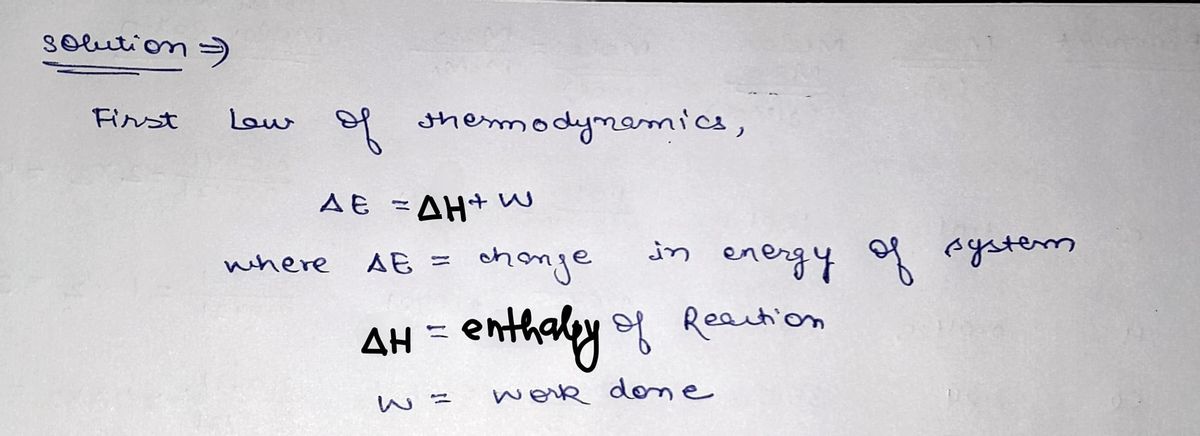 solution ⇒
First Law of thermodynamics,
ΔE = ΔH + W
where ΔE = change in energy of system
ΔH = enthalpy of Reaction
W = work done